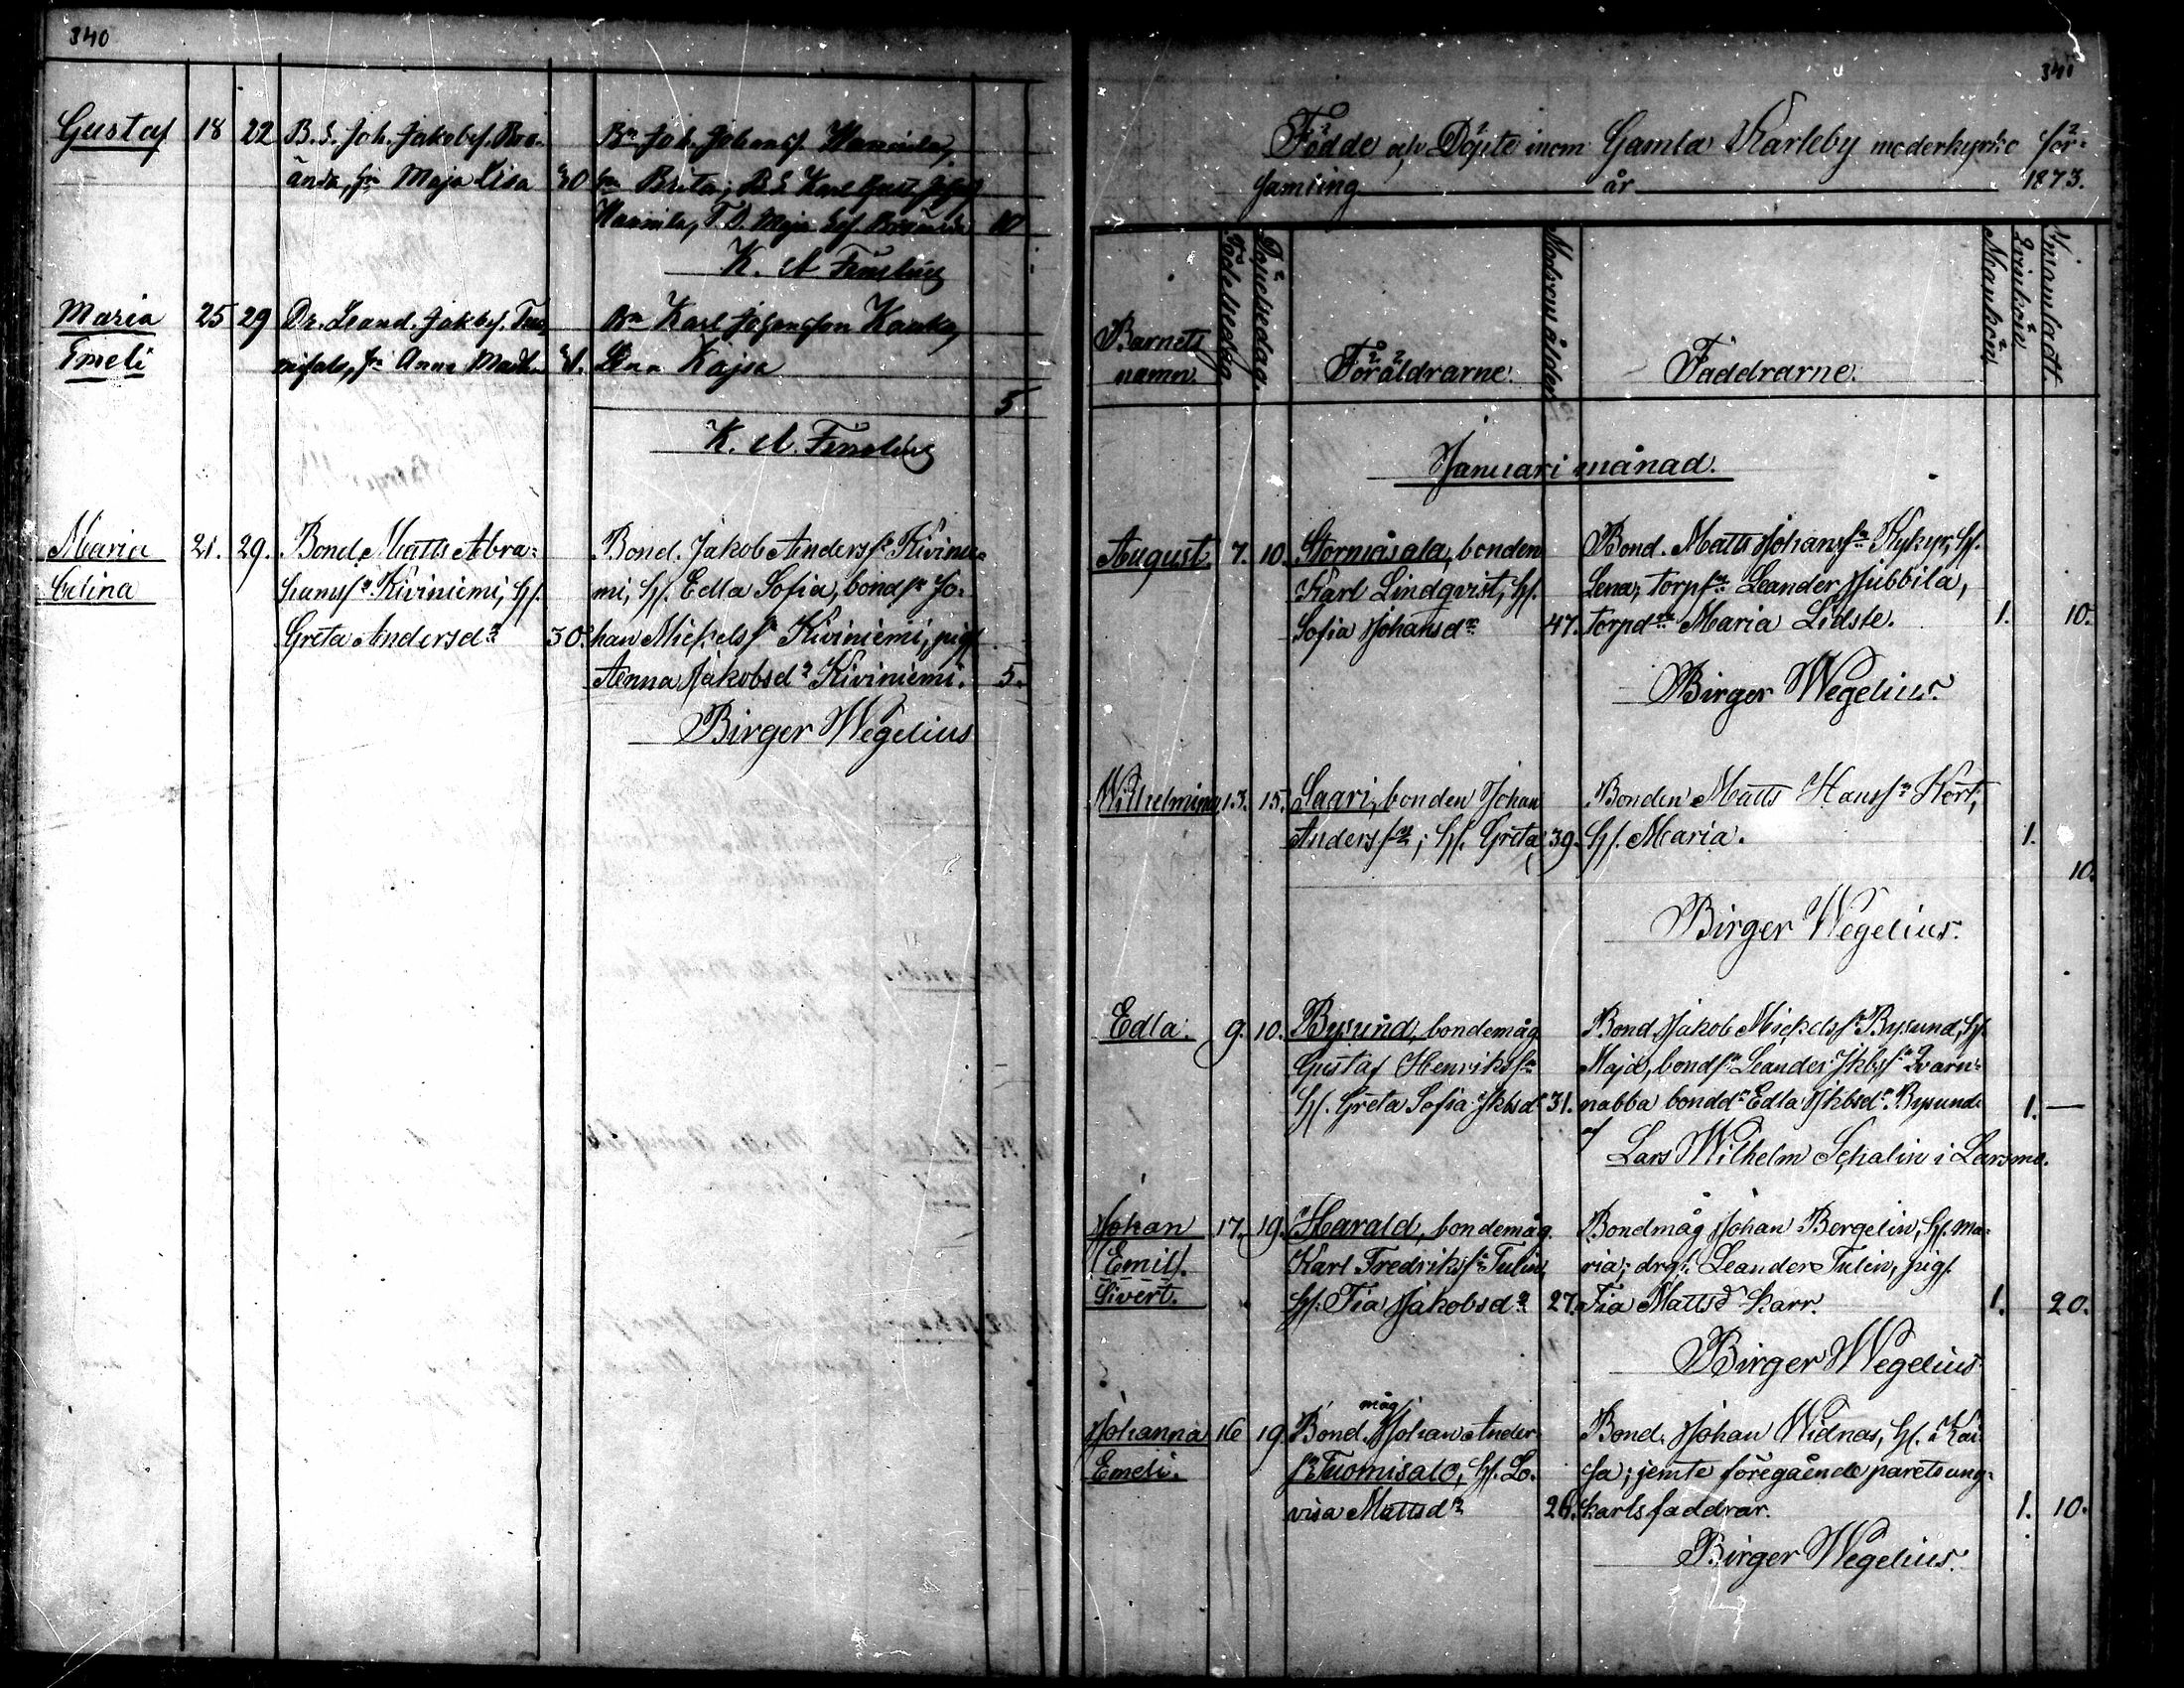 340
Gustaf 18 22 B. S. Joh. Jakobsf. Bro-
ända, hu Maja Lisa 30
Bn Joh. Johansf. Hannila,
hu Brita; B. S. Karl Gust. Johsf
Hannila, T. D. Maja Broända 10
K. A. Fenelius
Maria 25 29 Dr. Leand. Jakbsf.
Emeli hu Anna
Bn Karl Johansson Kauko,
Lena Kajsa
5
K. A. Fenelius
Maria 21. 29. Bond. Matts Abra-
Celina hamsfn Kiviniemi, Hs.
Greta Andersdr 30.
Bond. Jakob Andersfn Kivinie-
mi, Hs. Edla Sofia, bondsn Jo-
han Mickelsfn Kiviniemi, pig.
Anna Jakobsdr Kiviniemi. 5.
Birger Wegelius
341
Födde och Döpte inom Gamla Karleby moderkyrko för-
samling år 1873.
Barnets namn. Födelsedag. Döpelsedag. Föräldrarne. Modrens ålder. Faddrarne. Mankön. Qvinkön. Insamladt.
Januari månad.
August. 7. 10. Stormåsala, bonden
Karl Lindqvist, Hs.
Sofia Johansdr 47.
Bond. Matts Johansfn Kykyr, Hs.
Lena; torpsn Leander Hubbila,
torpdr Maria Lidste. 1. 10.
Birger Wegelius.
Wilhelmina 13. 15. Saari, bonden Johan
Andersfn; Hs. Greta 39.
Bonden Matts Hansfn Kort,
Hs. Maria. 1.
10.
Birger Wegelius.
Edla. 9. 10. Bysund, bondemåg
Gustaf Henriksfn
Hs. Greta Sofia Jkbsdr 31.
Bond. Jakob Mickelsfn Bysund, Hs.
Maja, bondsn Leander Jkbsfn Qvarn-
nabba bonddr Edla Jkbsdr Bysund. 1. —
af Lars Wilhelm Schalin i Larsmo.
Johan 17. 19. Harald, bondemåg.
(Emil). Karl Fredriksfn Tulin,
Sivert. Hs. Fia Jakobsdr 27.
Bondmåg Johan Borgelin, Hs. Ma-
ria; drgn Leander Tulin, pig.
Fia Mattsdr Karr. 1. 20.
Birger Wegelius.
Johanna 16 19. Bond. måg Johan Ander
Emeli. sfn Tuomisalo, Hs. Lo-
visa Mattsdr 26.
Bond. Johan Widnäs, Hs. Kai
sa; jemte föregående parets ung-
karlsfaddrar. 1. 10.
Birger Wegelius.